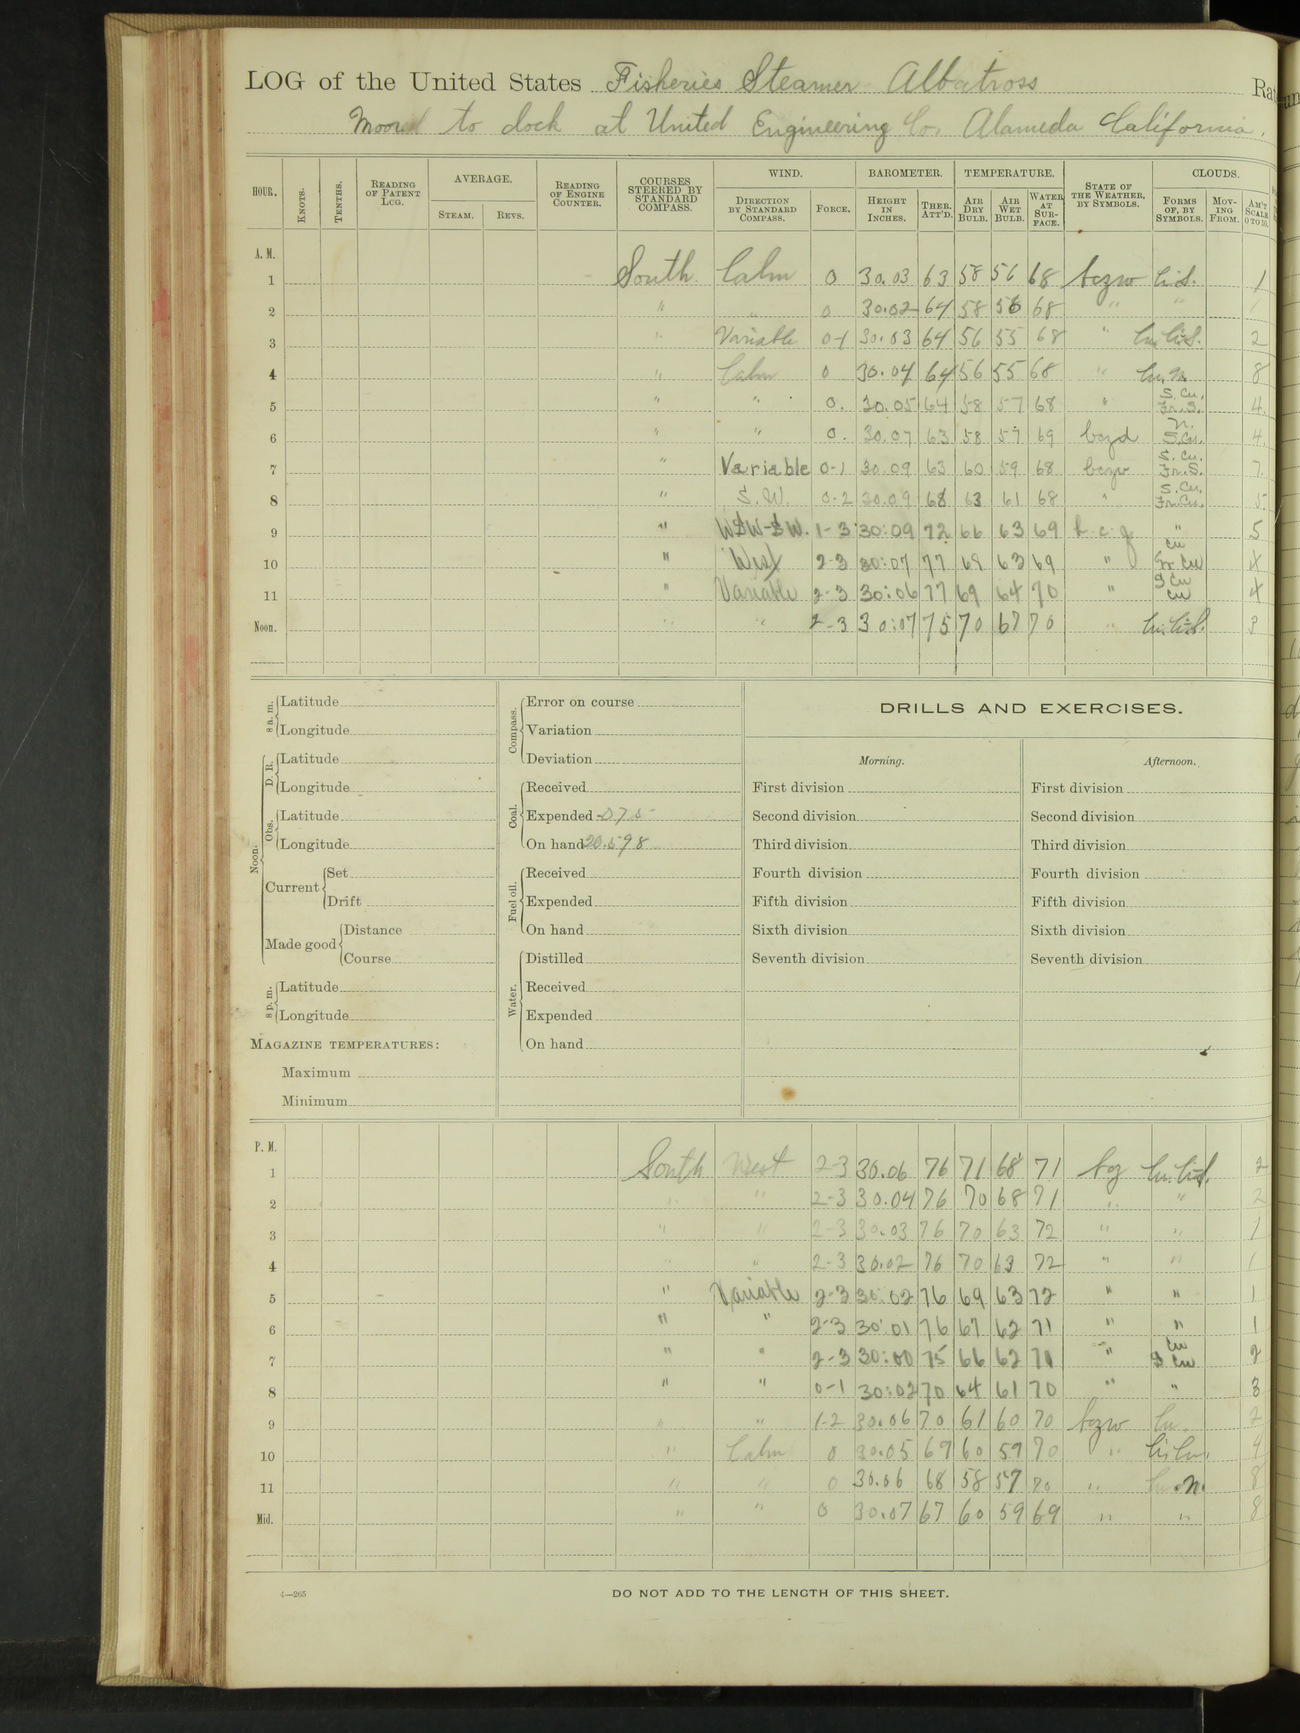 LOG of the United States Fisheries Steamer Albatross Rat
Moored to dock at United Engineering Co. Alameda California.
HOUR. KNOTS. TENTHS. READING OF PATENT LOG. AVERAGE. STEAM. REVS. READING OF ENGINE COUNTER. COURSES STEERED BY STANDARD COMPASS. WIND. DIRECTION BY STANDARD COMPASS. FORCE. BAROMETER. HEIGHT IN INCHES. THER. ATT'D. TEMPERATURE. AIR DRY BULB. AIR WET BULB. WATER AT SUR-FACE. STATE OF THE WEATHER, BY SYMBOLS. CLOUDS. FORMS OF, BY SYMBOLS. MOV-ING FROM. AM'T SCALE 0 TO 10.
A. M.
1 South Calm 0 30.03 63 58 56 68 bczw Ci.S. 1
2 " " 0 30.02 64 58 56 68 " " 1
3 " Variable 0-1 30.03 64 56 55 68 " Cu.Ci.S. 2
4 " Calm 0 30.04 64 56 55 68 " Cu.N. 8
5 " " 0. 30.05 64 58 57 68 " S.Cu. Fr.S. 4.
6 " " 0. 30.07 63 58 57 69 bczd N. S.Cu. 4.
7 " Variable 0-1 30.09 63 60 59 68 bczw S.Cu. Fr.S. 7.
8 " S.W. 0-2 30.09 68 63 61 68 " S.Cu. Fr.Cu. 5.
9 " WSW-SW. 1-3 30:09 72 66 63 69 b.c.z " 5
10 " West 2-3 30:07 77 69 63 69 " Cu Fr Cu 4
11 " Variable 2-3 30:06 77 69 64 70 " S Cu Cu 4
Noon. " " 2-3 30:07 75 70 67 70 " Cu.Ci.S. 3
8 a. m. Latitude
Longitude
Noon.
D. R. Latitude
Longitude
Obs. Latitude
Longitude
Current Set
Drift
Made good Distance
Course
8 p. m. Latitude
Longitude
MAGAZINE TEMPERATURES:
Maximum
Minimum
Compass. Error on course
Variation
Deviation
Coal. Received
Expended .075
On hand 20.598
Fuel oil. Received
Expended
On hand
Water. Distilled
Received
Expended
On hand
DRILLS AND EXERCISES.
Morning. Afternoon.
First division First division
Second division Second division
Third division Third division
Fourth division Fourth division
Fifth division Fifth division
Sixth division Sixth division
Seventh division Seventh division
P. M.
1 South West 2-3 30.06 76 71 68 71 bcz Cu.Ci-S. 2
2 " " 2-3 30.04 76 70 68 71 " " 2
3 " " 2-3 30.03 76 70 63 72 " " 1
4 " " 2-3 30.02 76 70 63 72 " " 1
5 " Variable 2-3 30:02 76 69 63 72 " " 1
6 " " 2-3 30:01 76 67 62 71 " " 1
7 " " 2-3 30:00 75 66 62 71 " Cu S Cu 2
8 " " 0-1 30:02 70 64 61 70 " " 3
9 " " 1-2 30.06 70 61 60 70 bczw Cu. 2
10 " Calm 0 30.05 69 60 59 70 " Ci.Cu. 4
11 " " 0 30.06 68 58 57 70 " Cu.N. 8
Mid. " " 0 30.07 67 60 59 69 " " 8
4—265
DO NOT ADD TO THE LENGTH OF THIS SHEET.